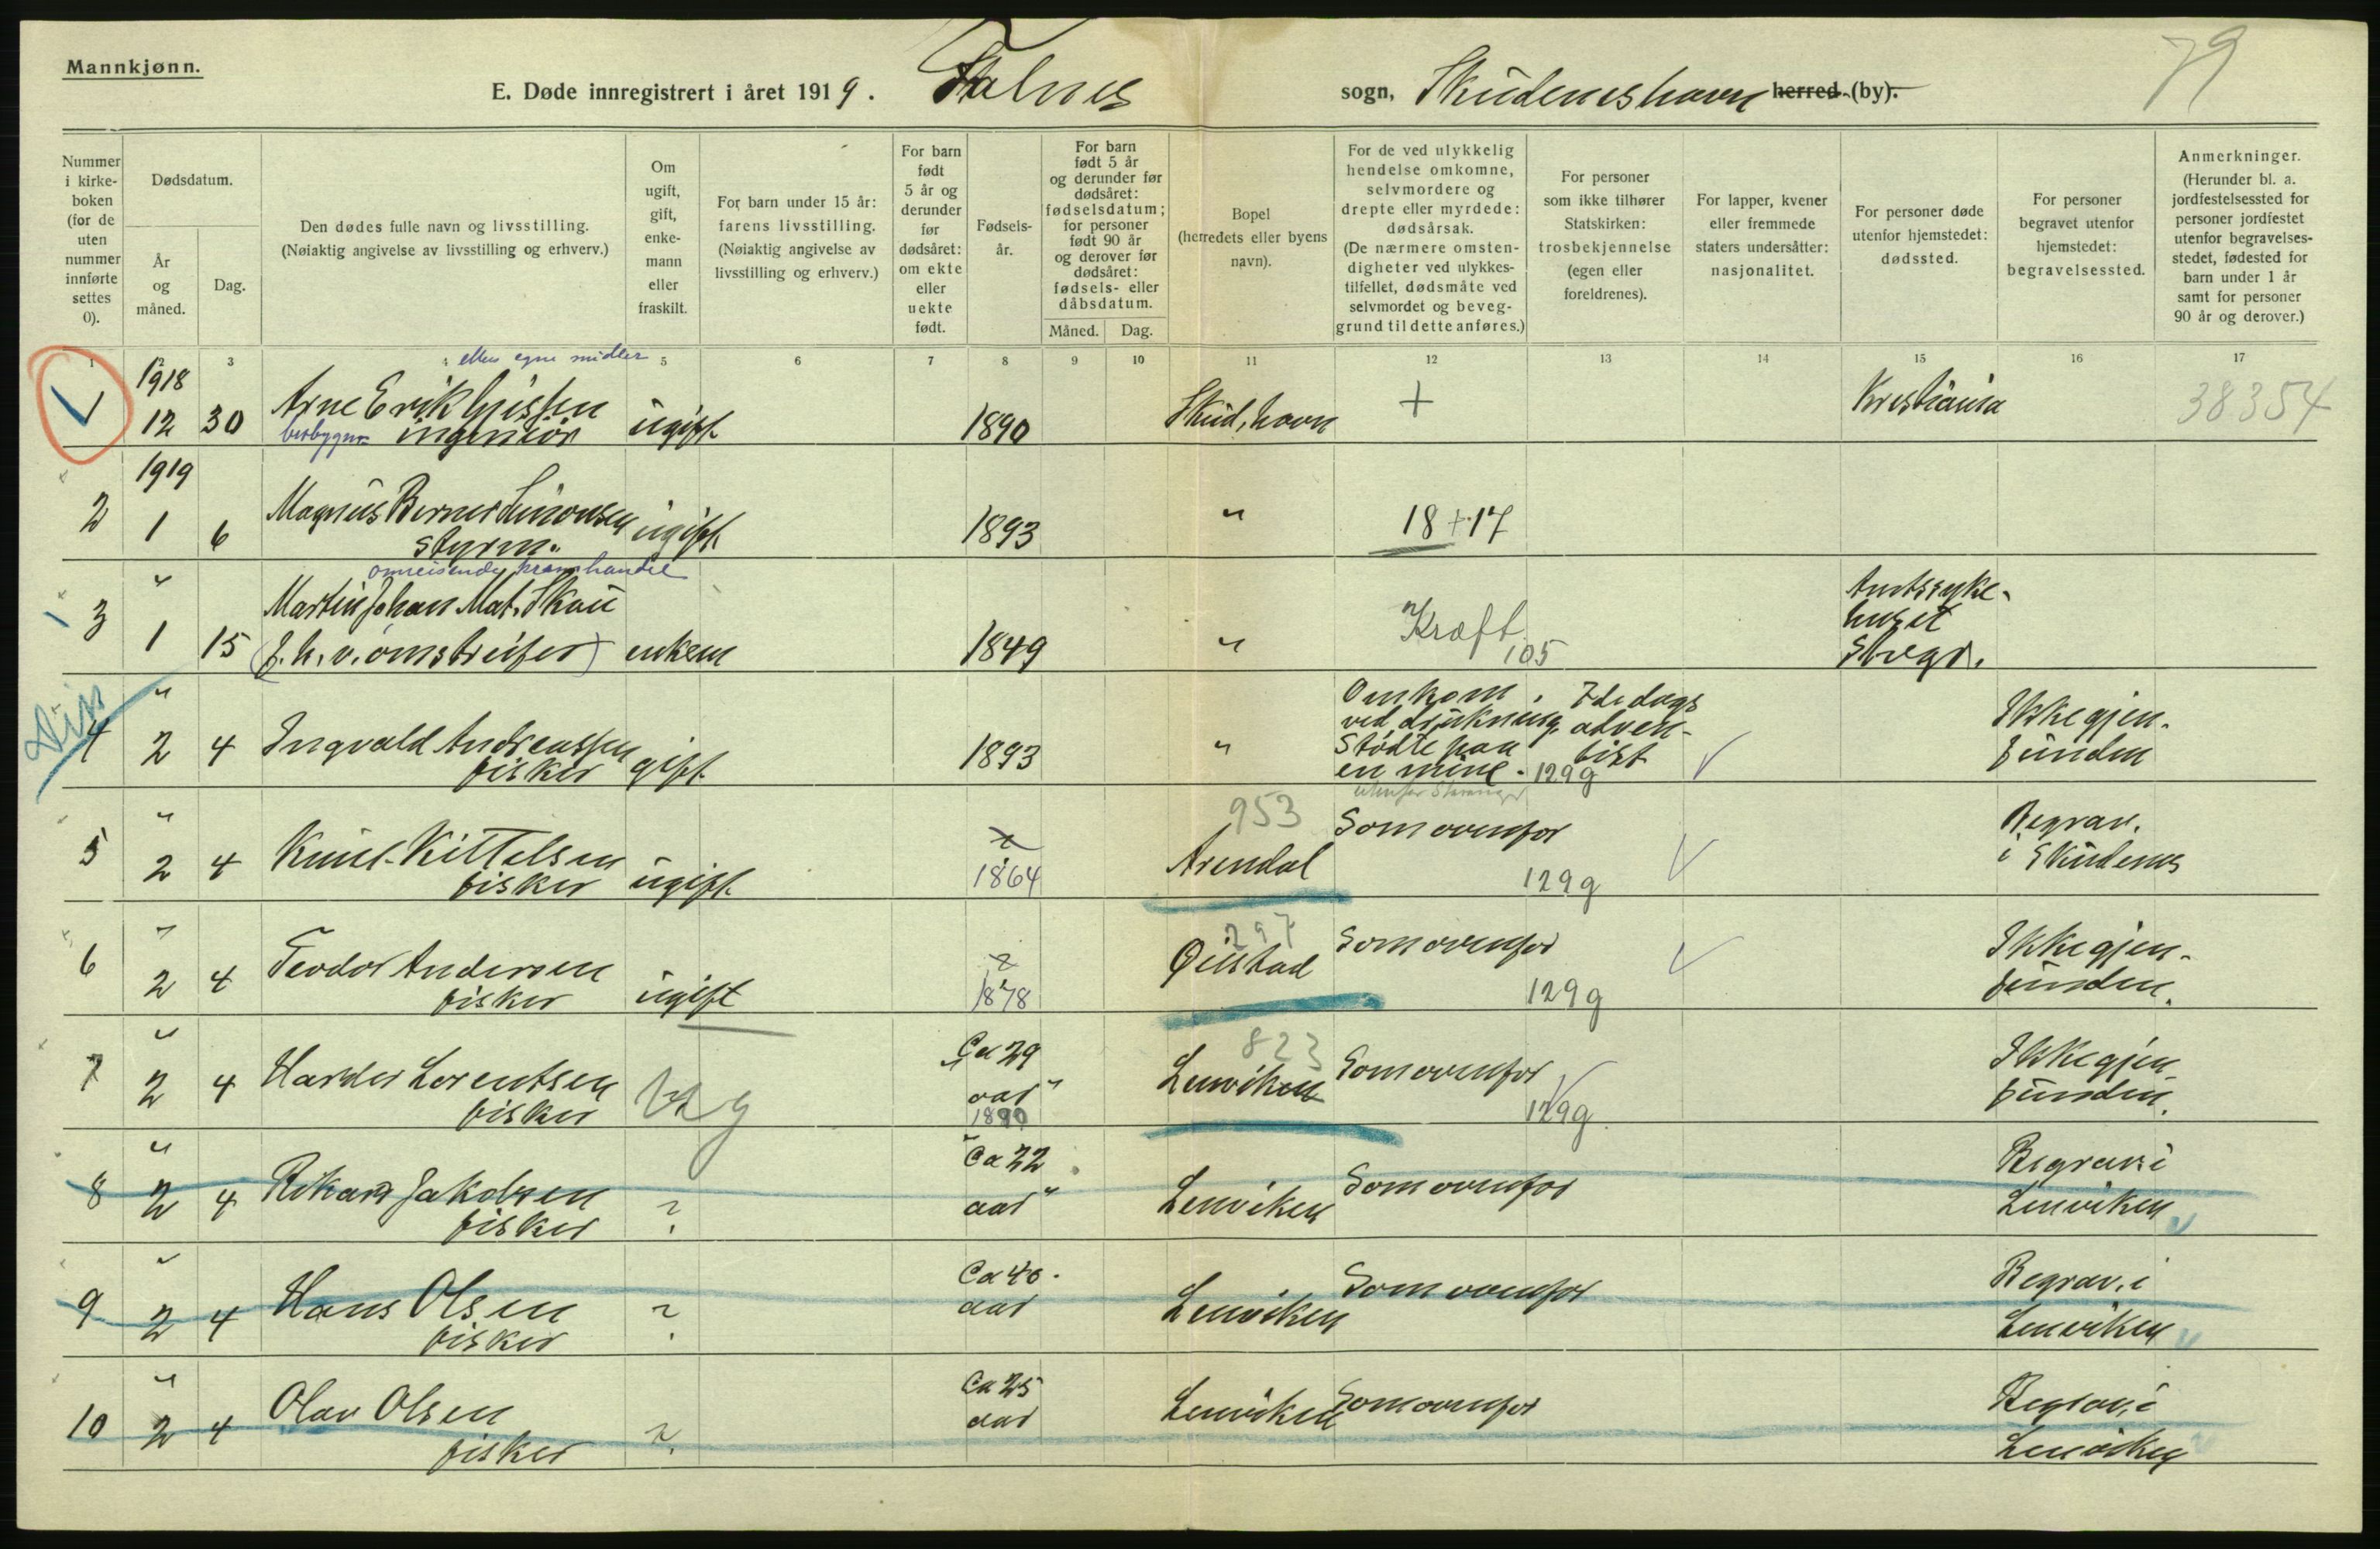 Mannkjønn.
E. Døde innregistrert i året 1919. Falnes sogn, Skudeneshavn herred (by).
79
Nummer i kirke-boken (for de uten nummer innførte settes 0).
Dødsdatum.
År og måned.
Dag.
Den dødes fulle navn og livsstilling.
(Nøiaktig angivelse av livsstilling og erhverv.)
Om ugift, gift, enke-mann eller fraskilt.
For barn under 15 år: farens livsstilling. (Nøiaktig angivelse av livsstilling og erhverv.)
For barn født 5 år og derunder før dødsåret: om ekte eller uekte født.
Fødsels-år.
For barn født 5 år og derunder før dødsåret: fødselsdatum; for personer født 90 år og derover før dødsåret: fødsels- eller dåbsdatum.
Måned. Dag.
Bopel (herredets eller byens navn).
For de ved ulykkelig hendelse omkomne, selvmordere og drepte eller myrdede: dødsårsak. (De nærmere omsten-digheter ved ulykkes-tilfellet, dødsmåte ved selvmordet og beveg-grund til dette anføres.)
For personer som ikke tilhører Statskirken: trosbekjennelse (egen eller foreldrenes).
For lapper, kvener eller fremmede staters undersåtter: nasjonalitet.
For personer døde utenfor hjemstedet: dødssted.
For personer begravet utenfor hjemstedet: begravelsessted.
Anmerkninger. (Herunder bl. a. jordfestelsessted for personer jordfestet utenfor begravelses-stedet, fødested for barn under 1 år samt for personer 90 år og derover.)
1 2 3 4 5 6 7 8 9 10 11 12 13 14 15 16 17
eller egne midler
1918
1 12 30 Arne Erik ingeniør ugift 1890 Skud.havn + Kristiania 38354
1919
2 1 6 Magnus Berner Simonsen styrm. ugift 1893 " 18+17
omreisende kramhandel
3 " 1 15 Martin Johan Mat. Skau (f.h.v. omstreifer) enkem 1849 " Kræft 105 Amtssyke-huset Stvgr.
4 " 2 4 Ingvald Andreassen fisker gift 1893 " Omkom ved synkning, Stødte paa en mine. utenfor Stavanger 129g 7de dags adven-tist Ikke gjen-funden
5 " 2 4 Knut Kittelsen fisker ugift ? 1864 953 Arendal Som ovenfor 129g Begrav. i Skudenes
6 " 2 4 Teodor Andersen fisker ugift ? 1878 297 Øiestad Som ovenfor 129g Ikke gjen-funden.
7 " 2 4 Lorentsen fisker ug "Ca 29 aar" 1890 823 Lenviken Som ovenfor 129g Ikke gjen-funden.
8 " 2 4 Rikard Jakobsen fisker ? "Ca 22 aar" Lenviken Som ovenfor Begrav. i Lenviken
9 " 2 4 Hans Olsen fisker ? Ca 40 aar Lenviken Som ovenfor Begrav. i Lenviken
10 " 2 4 Olav Olsen fisker ? Ca 25 aar Lenviken Som ovenfor Begrav. i Lenviken